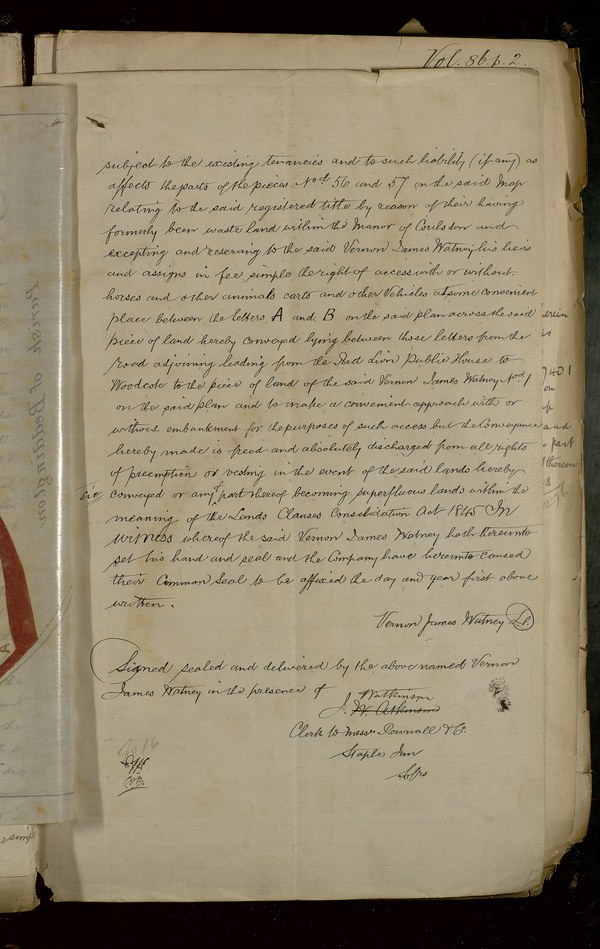 Vol. 86. p. 2.
subject to the existing tenancies and to such liability (if any) as
affects the parts of the pieces Nod 56 and 57 on the said Map
relating to the said registered title by reason of their having
formerly been waste land within the Manor of Coulsdon and
excepting and reserving to the said Vernon James Watney his heirs
and assigns in fee simple the right of access with or without
horses and other animals carts and other Vehicles at some convenient
place between the letters A and B on the said plan across the said
piece of land hereby conveyed lying between those letters from the
road adjoining leading from the Red Lion Public House to
Woodcote to the piece of land of the said Vernon James Watney Nod 1
on the said plan and to make a convenient approach with or
without embankment for the purposes of such access but the Conveyance
hereby made is freed and absolutely discharged from all rights
of preemption or vesting in the event of the said lands hereby
sic conveyed or any part thereof becoming superfluous lands within the
meaning of the Lands Clauses Consolidation Act 1845 In
witness whereof the said Vernon James Watney hath hereunto
set his hand and seal and the Company have hereunto caused
their Common Seal to be affixed the day and year first above
written.
Vernon James Watney L.S.
Signed sealed and delivered by the above named Vernon
James Watney in the presence of
Watkinson
J. W. Atkinson
Clerk to Messrs Pownall & Co.
Staple Inn
Parish of Beddington